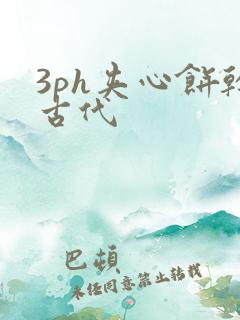 3ph夹心餅乾
古代
巴頓
未经同意禁止转载